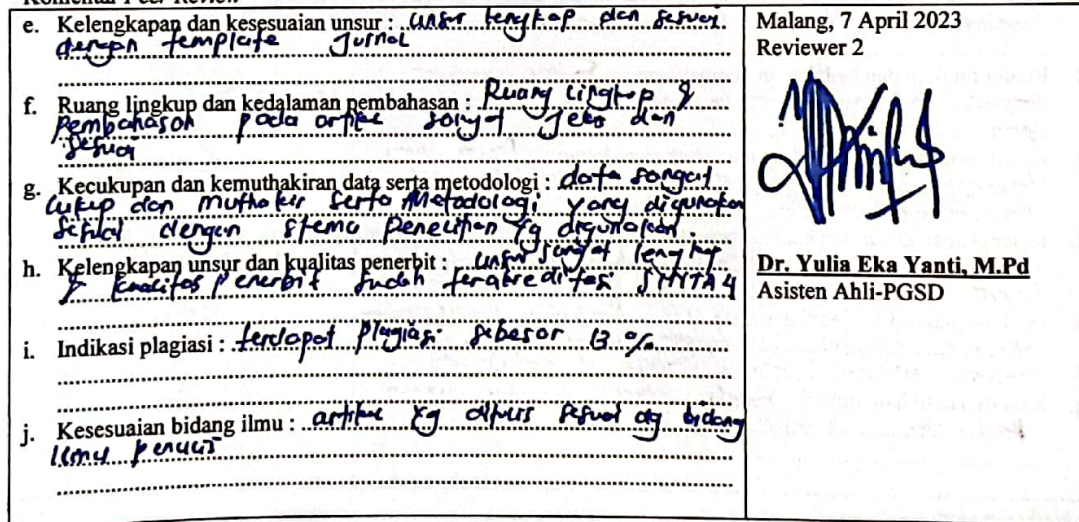 Komentar Peer Review
e. Kelengkapan dan kesesuaian unsur : unsur lengkap dan sesuai
dengan template Jurnal
f. Ruang lingkup dan kedalaman pembahasan : Ruang lingkup &
Pembahasan pada artikel sangat jelas dan
sesuai
g. Kecukupan dan kemuthakiran data serta metodologi : data sangat
cukup dan muthakir serta Metodologi yang digunakan
sesuai dengan skema penelitian yg digunakan
h. Kelengkapan unsur dan kualitas penerbit : unsur sangat lengkap
& kualitas penerbit sudah terakreditasi SINTA 4
i. Indikasi plagiasi : terdapat Plagiasi sebesar 13 %
j. Kesesuaian bidang ilmu : artikel yg ditulis sesuai dg bidang
ilmu penulis
Malang, 7 April 2023
Reviewer 2
Dr. Yulia Eka Yanti, M.Pd
Asisten Ahli-PGSD